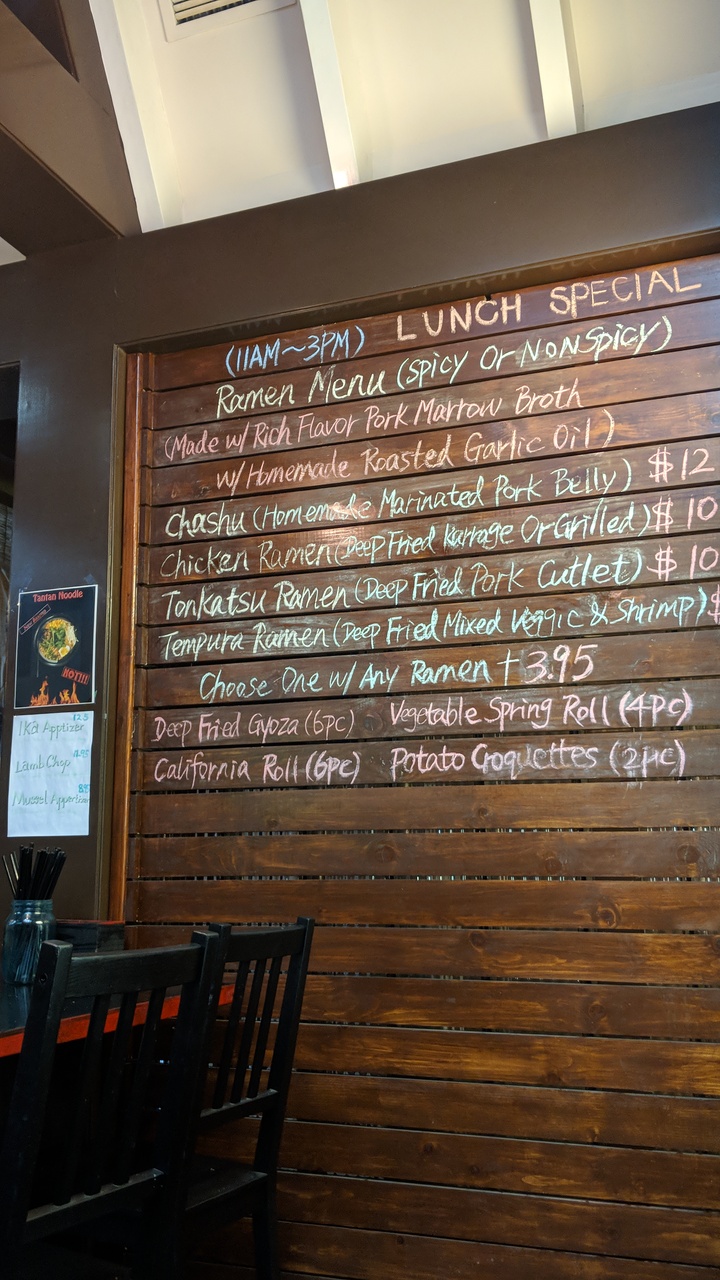 LUNCH SPECIAL
(11AM~3PM)
Ramen Menu (Spicy Or NonSpicy)
(Made w/ Rich Flavor Pork Marrow Broth
w/ Homemade Roasted Garlic Oil)
Chashu (Homemade Marinated Pork Belly) $12
Chicken Ramen (Deep Fried Karrage Or Grilled) $10
Tonkatsu Ramen (Deep Fried Pork Cutlet) $10
Tempura Ramen (Deep Fried Mixed Veggie & Shrimp) $
Choose One w/ Any Ramen + 3.95
Deep Fried Gyoza (6pc) Vegetable Spring Roll (4pc)
California Roll (6pc) Potato Croquettes (2pc)
Tantan Noodle
HOT!!!
Ika Appetizer
Lamb Chop
Mussel